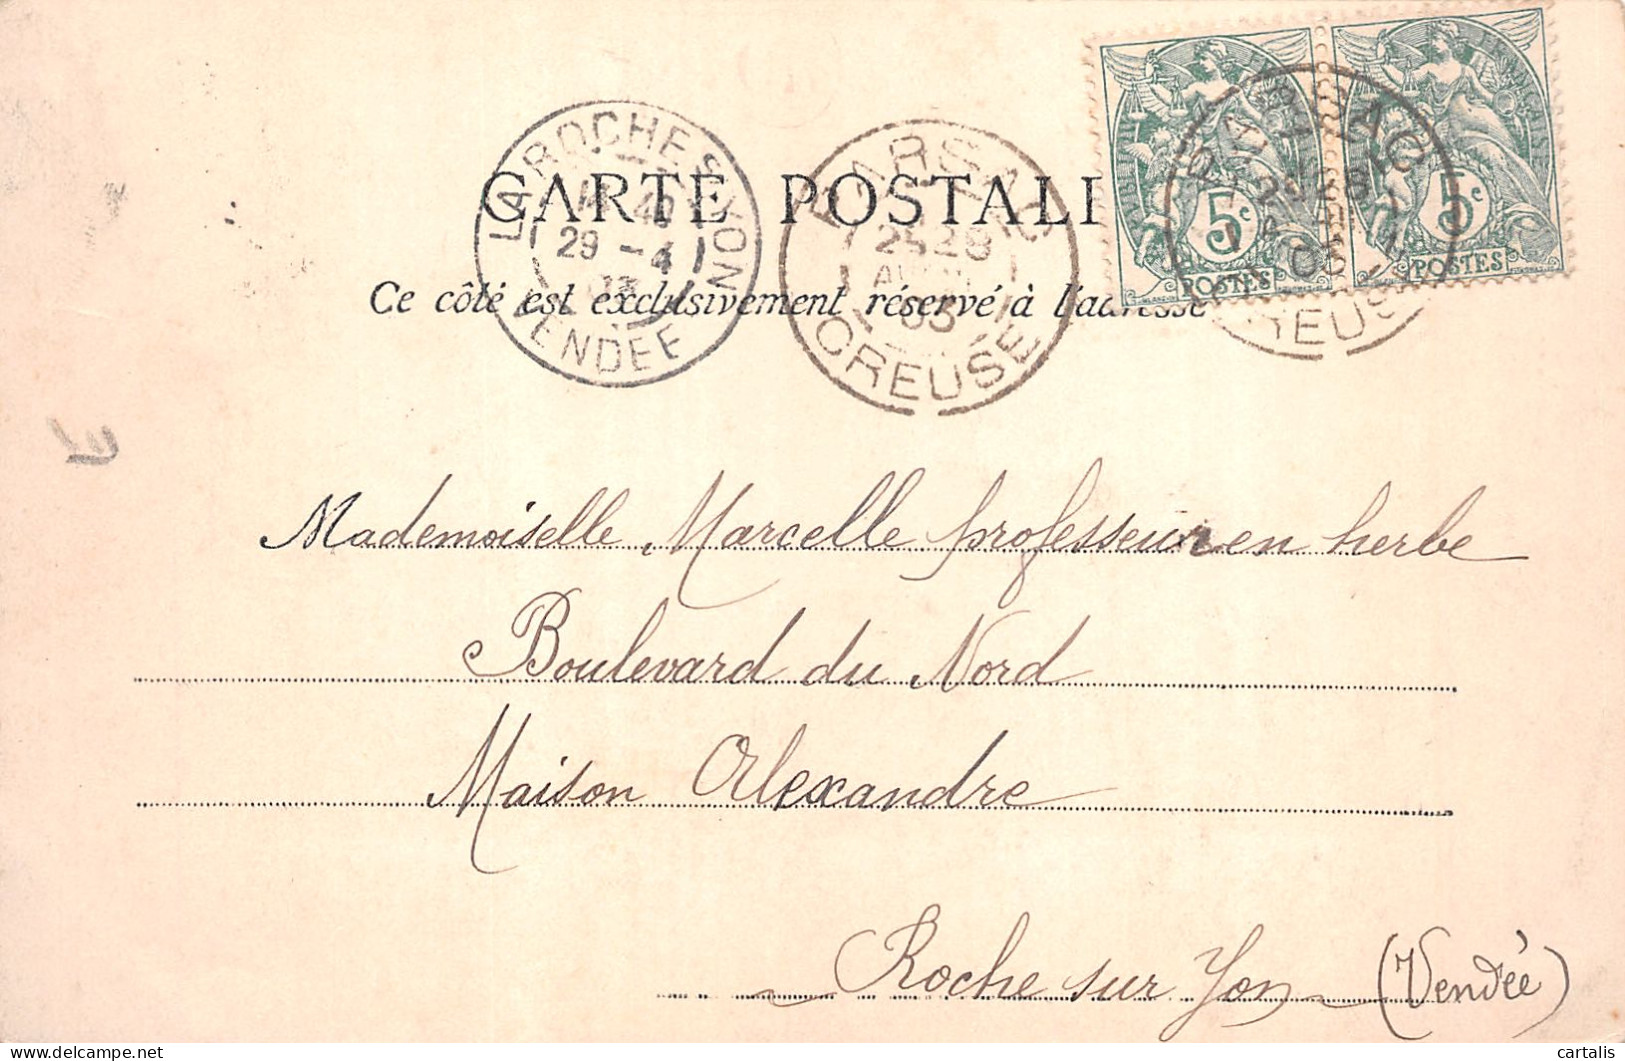 CARTE POSTALE
Ce côté est exclusivement réservé à l'adresse
LA ROCHE S YON
29 - 4
VENDEE
PARSAC
28
03
CREUSE
5c
POSTES
5c
POSTES
Mademoiselle Marcelle professeur en herbe
Boulevard du Nord
Maison Alexandre
Roche sur Yon (Vendée)
delcampe.net
cartalis